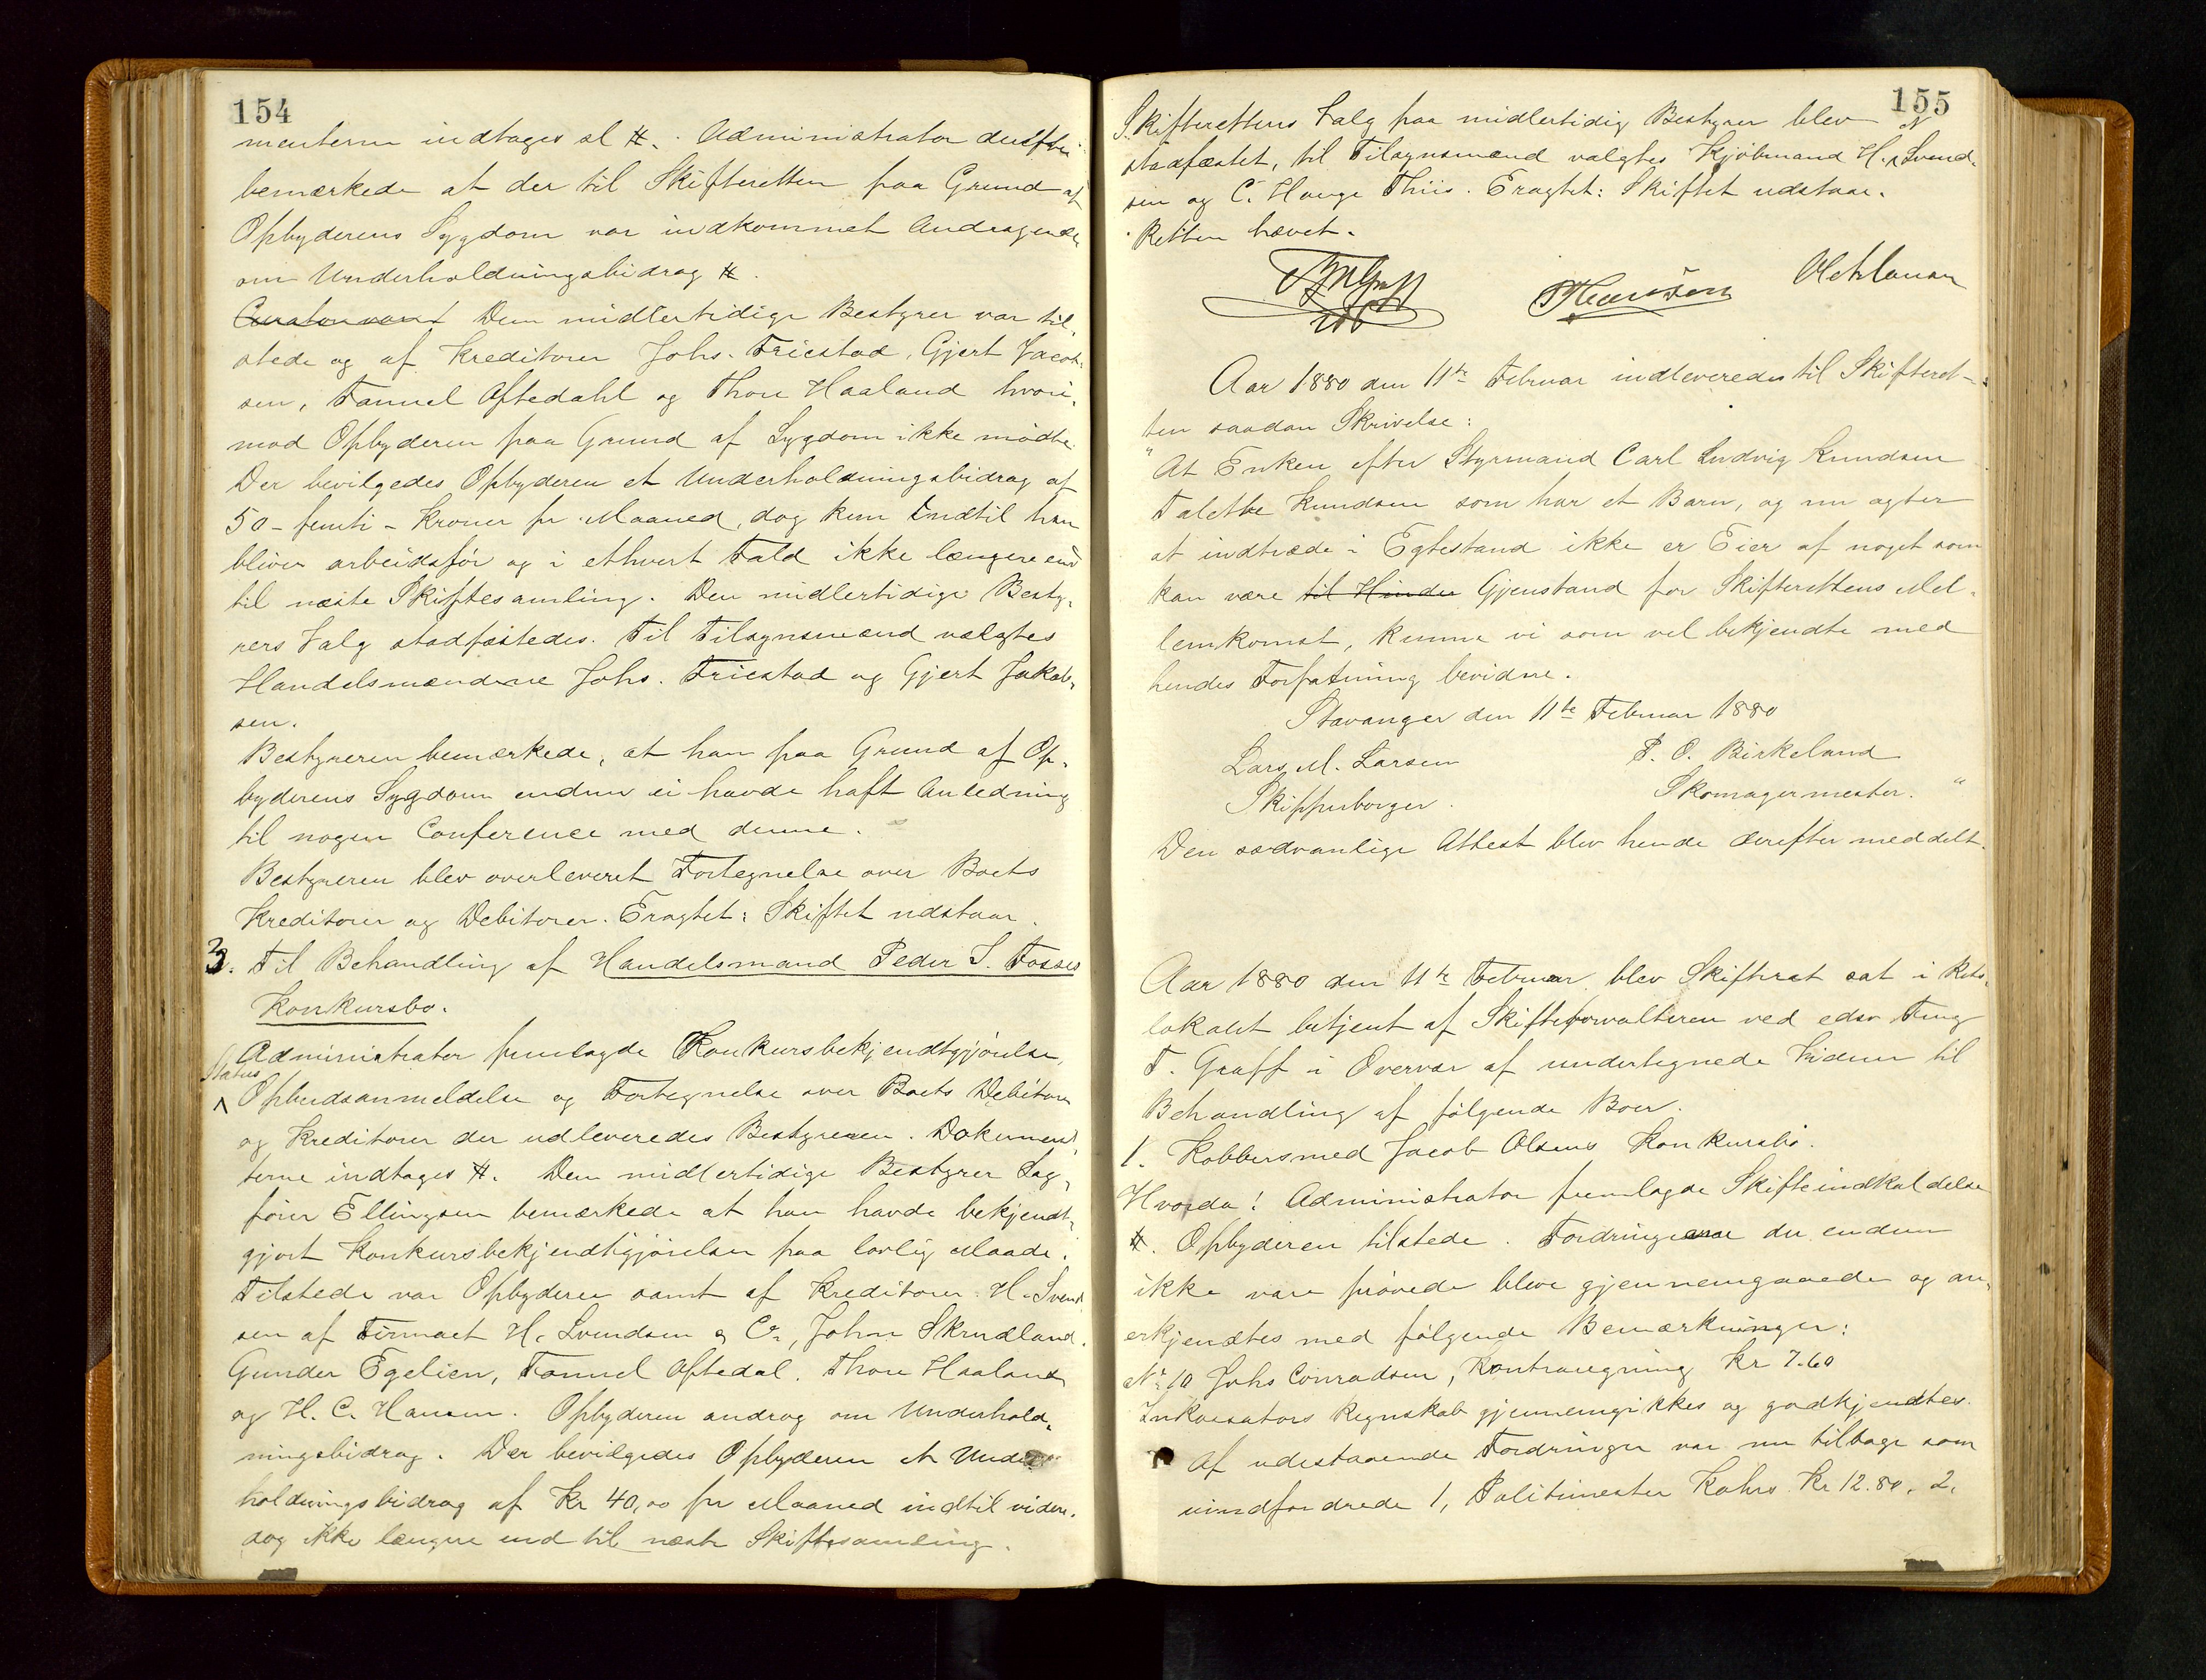 154
menterne indtages sl #. Administrator
bemærkede at der til Skifteretten paa Grund af
Opbyderens Sygdom var indkommet Andragende
om Underholdningsbidrag #.
Den midlertidige Bestyrer var til-
stede og af Kreditorer Johs. Friestad, Gjert Jacob-
sen, Tønnel Aftedahl og Thore Haaland hvori-
mod Opbyderen paa Grund af Sygdom ikke mødte.
Der bevilgedes Opbyderen et Underholdningsbidrag af
50 - femti - Kroner pr Maaned, dog kun indtil han
bliver arbeidsfør og i ethvert Fald ikke længere end
til næste Skiftesamling. Den midlertidige Besty-
rers Valg stadfæstedes. Til Tilsynsmænd valgtes
Handelsmændene Johs. Friestad og Gjert Jakob-
sen.
Bestyreren bemærkede, at han paa Grund af Op-
byderens Sygdom endnu ei havde haft Anledning
til nogen Conference med denne.
Bestyreren blev overleveret Fortegnelse over Boets
Kreditorer og Debitorer. Eragtet: Skiftet udstaar.
3. Til Behandling af Handelsmand Peder S. Fosses
Konkursbo.
Administrator fremlagde Konkursbekjendtgjørelse,
Status
Opbudsanmeldelse og Fortegnelse over Boets Debitorer
og Kreditorer der udleveredes Bestyreren. Dokumen-
terne indtages #. Den midlertidige Bestyrer Sag-
fører Ellingsen bemærkede at han havde bekjendt-
gjort Konkursbekjendtgjørelsen paa lovlig Maade.
Tilstede var Opbyderen samt af Kreditorer H. Svend-
sen af Firmaet H. Svendsen & Co, John Skrudland.
Gunder Egelien, Tønnel Aftedal. Thore Haaland
og H. C. Hansen. Opbyderen androg om Underhold-
ningsbidrag. Der bevilgedes Opbyderen et Under-
holdningsbidrag af Kr 40,00 pr Maaned indtil videre.
dog ikke længere end til næste Skiftesamling.
155
Skifterettens Valg paa midlertidig Bestyrer blev
stadfæstet, til Tilsynsmænd valgtes Kjøbmand H. N Svend-
sen og C. Hauge Thiis. Eragtet: Skiftet udstaar.
Retten hævet.
Aar 1880 den 11te Februar indleveredes til Skifteret-
ten saadan Skrivelse:
"At Enken efter Styrmand Carl Ludvig Knudsen
Talette Knudsen som har et Barn, og nu agter
at indtræde i Egtestand ikke er Eier af noget som
kan være til Hinder Gjenstand for Skifterettens Mel-
lemkomst, kunne vi som vel bekjendte med
hendes Forfatning bevidne.
Stavanger den 11te Februar 1880
Lars M. Larsen P. O. Birkeland
Skipperborger. Skomagermester. "
Den sædvanlige Attest blev hende derefter meddelt.
Aar 1880 den 11te Februar blev Skifteret sat i Rets-
lokalet betjent af Skifteforvalteren ved edsv Fmg
T. Graff i Overvær af undertegnede Vidner til
Behandling af følgende Boer.
1. Kobbersmed Jacob Olsens Konkursbo.
Hvorda! Administrator fremlagde Skifteindkaldelse
#. Opbyderen tilstede. Fordringerne der endnu
ikke vare prøvede bleve gjennemgaaede og an-
erkjendtes med følgende Bemærkninger:
No 10 Johs Conradsen, Kontraregning Kr 7.60
Inkassators Regnskab gjennemgikkes og godkjendtes.
Af udestaaende Fordringer var nu tilbage som
uindfordrede 1, Politimester Kahrs Kr 12.80. 2,